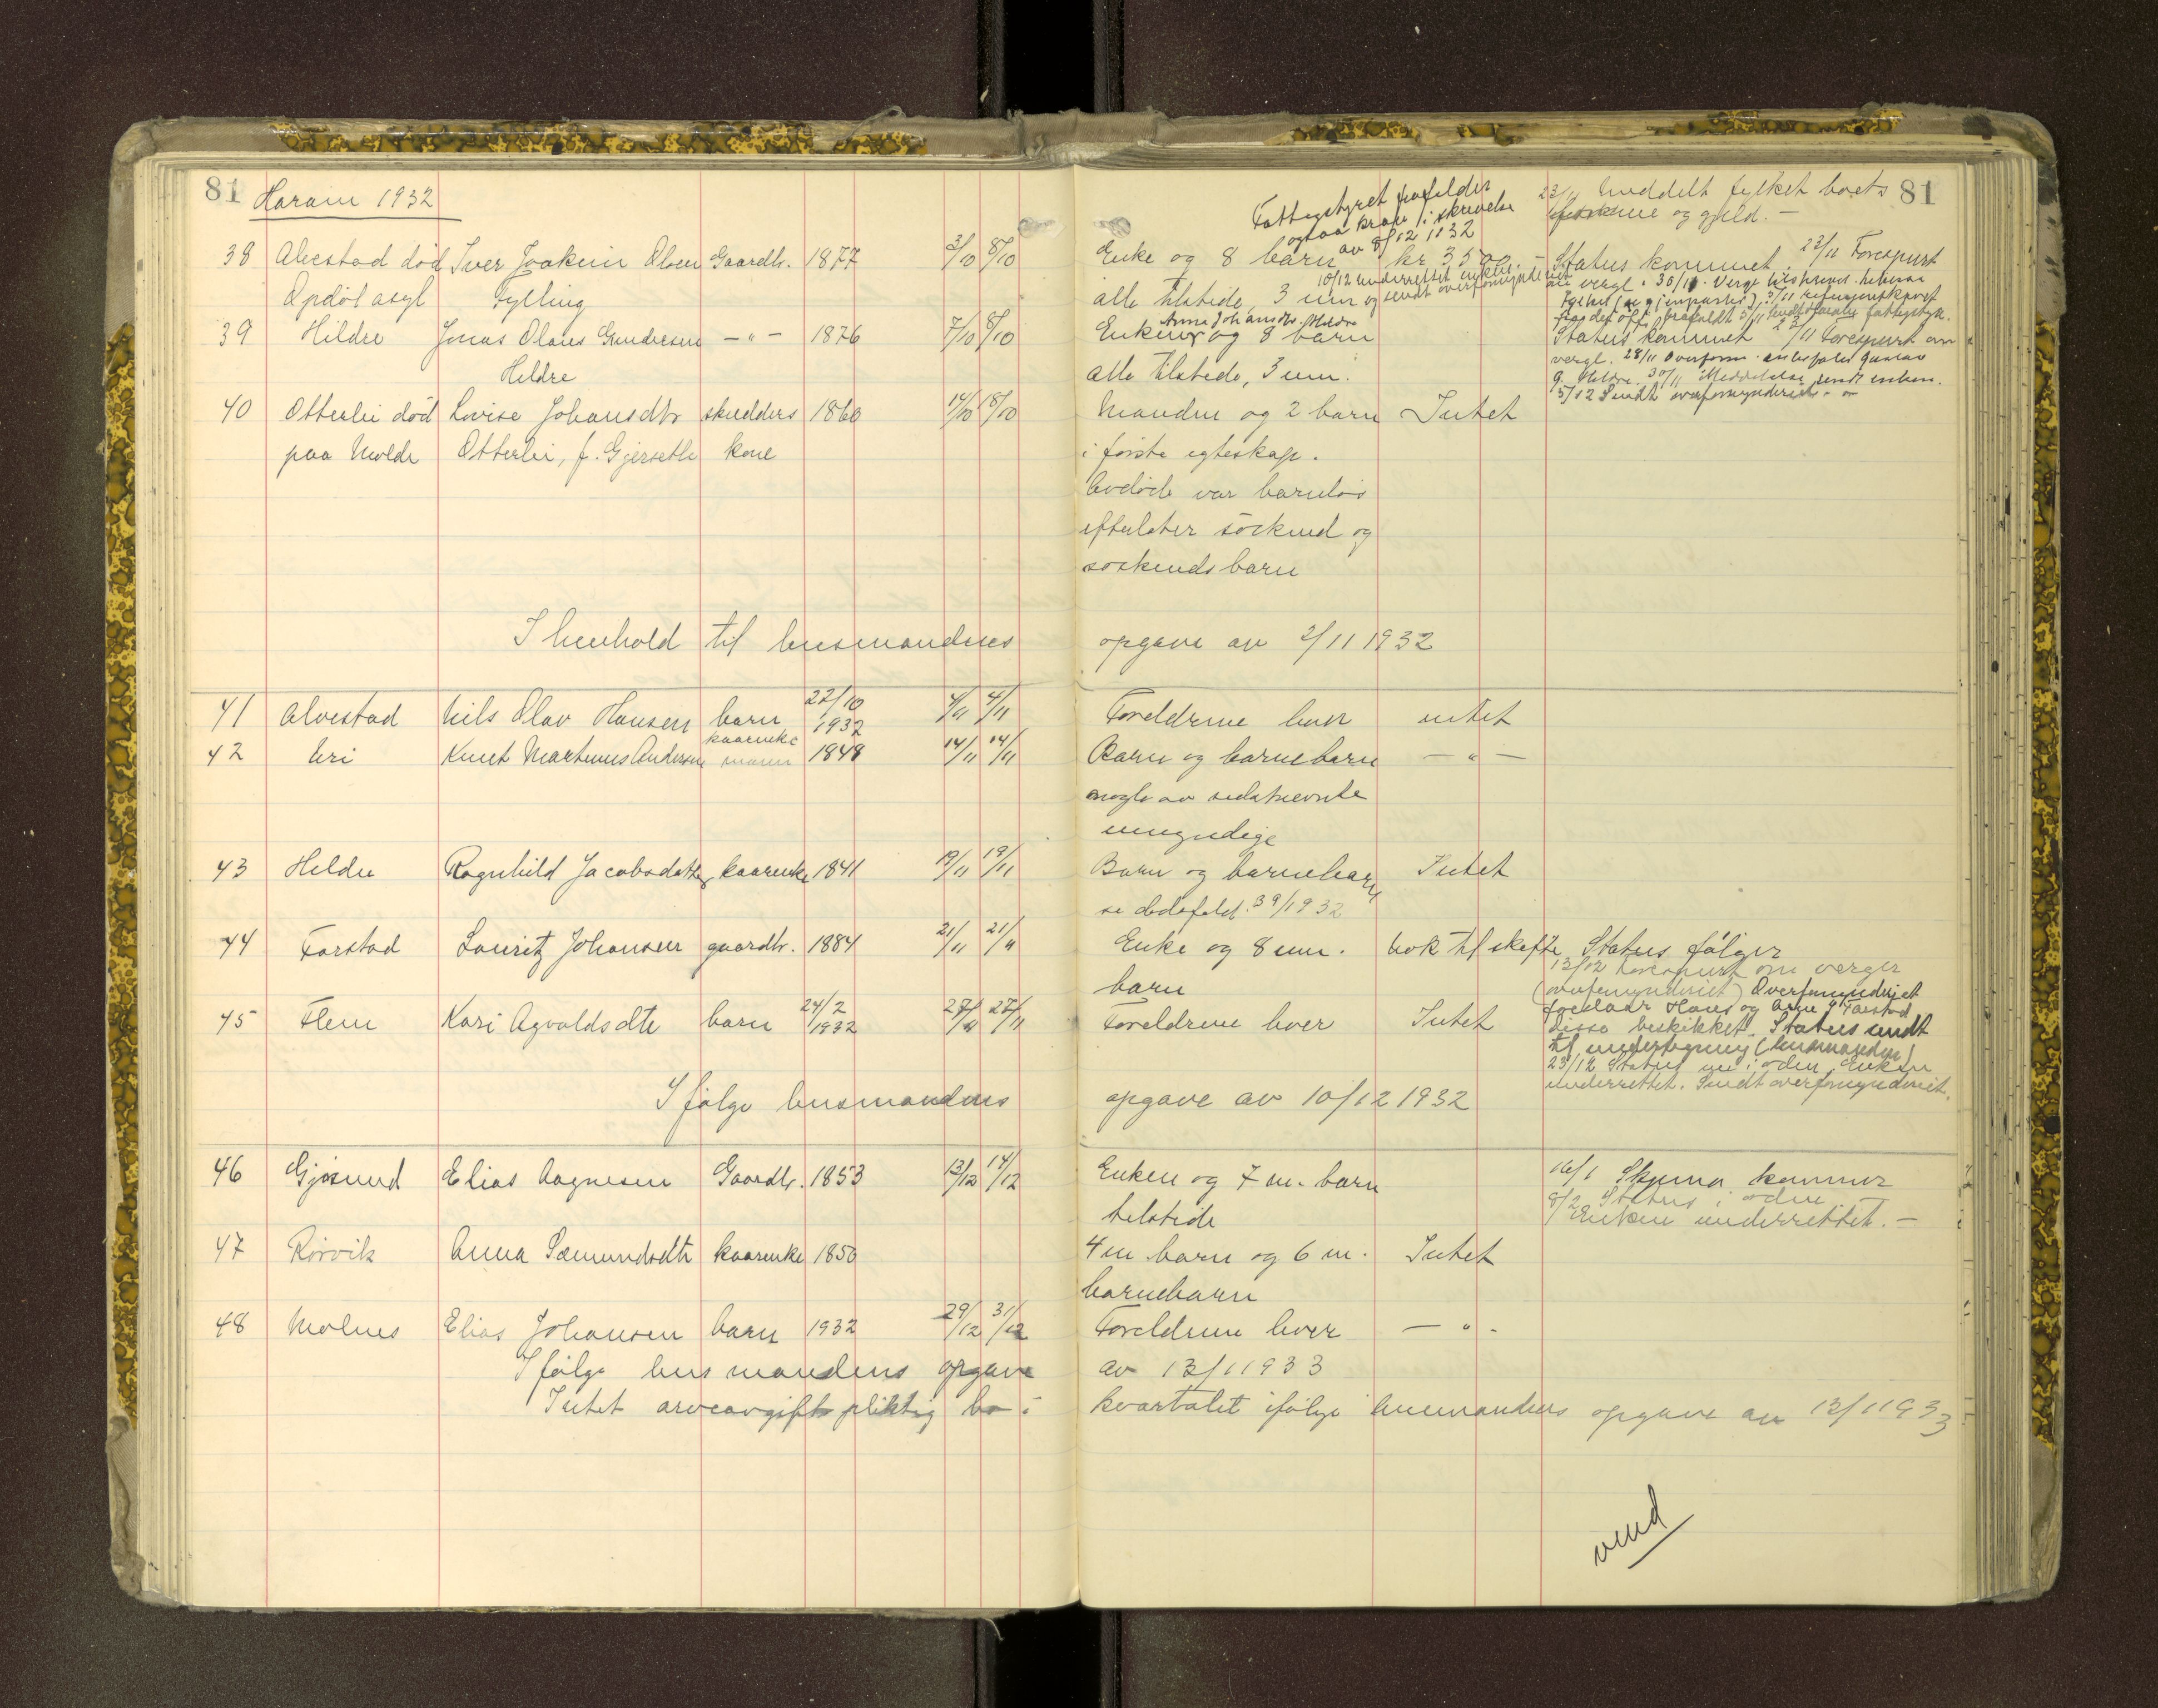 81 Haram 1932
38 Alvestad død Iver Joakim Olsen Gaardbr. 1877 3/10 8/10
Opdöl asyl Fylling
39 Hildre Jonas Olaus Gundersen — " — 1876 7/10 8/10
Hildre
40 Otterlei död Lovise Johansdtr skredders 1860 14/10 18/10
paa Molde Otterlei, f. Gjersethe kone
I henhold til lensmandens
41 Alvestad Nils Olav Hansen barn 22/10 1932 4/11 4/11
42 Uri Knut Martinus Andersen kaarenke mann 1848 14/11 14/11
43 Hildre Ragnhild Jacobsdatter kaarenke 1841 19/11 19/11
44 Farstad Lauritz Johansen gaardbr. 1884 21/11 21/11
45 Flem Kari Agvaldsdtr barn 24/2 1932 27/11 27/11
Ifølge lensmandens
46 Gjøsund Elias Aagnesen Gaardbr. 1853 13/12 14/12
47 Rørvik Anna Sæmundsdtr kaarenke 1850
48 Molnes Elias Johansen barn 1932 29/12 31/12
Ifølge lensmandens opgave
Intet arveavgiftspliktig bo i
81
Fattigstyret
ogsaa krav i skrivelse
av 8/12 1932
23/11 Meddelt fylket boets
og gjeld. —
Enke og 8 barn kr 3500. — Status kommet. 23/11 Forespurt
10/12 underrettet enken. og sendt overformynderiet
alle tilstede, 3 um
om verge. 30/11
Anne Johansdtr. Hildre
Enken og 8 barn
Status kommet 23/11 Forespurt om
alle tilstede, 3 um.
verge. 28/11 Overform. anbefaler Gunnar
G. Hildre. 30/11 Meddelelse sendt enken.
5/12 Sendt overformynderiet. —
Manden og 2 barn Intet
i første egteskap.
Avdöde var barnlös
efterlater söskend og
söskendsbarn
opgave av 2/11 1932
Foreldrene lever intet
Barn og barnebarn — " —
nogle av sidstnevnte
umyndige
Barn og barnebarn Intet
se dødsfald. 39/1932
Enke og 8 um. Nok til skifte Status følger
barn
13/12 Forespurt om verger
(overformynderiet) Overformynderiet
foreslaar Hans og Arne J Farstad
disse beskikket. Status sendt
til undertegning (lensmanden)
23/12 Status nu i orden. Enken
underrettet. Sendt overformynderiet.
Foreldrene lever Intet
opgave av 10/12 1932
Enken og 7 m. barn 16/1 Skjema kommer
tilstede
8/2 Status i orden
Enken underrettet. —
4 m barn og 6 m. Intet
barnebarn
Foreldrene lever — " -
av 13/1 1933
kvartalet ifølge lensmandens opgave av 13/1 1933
vend